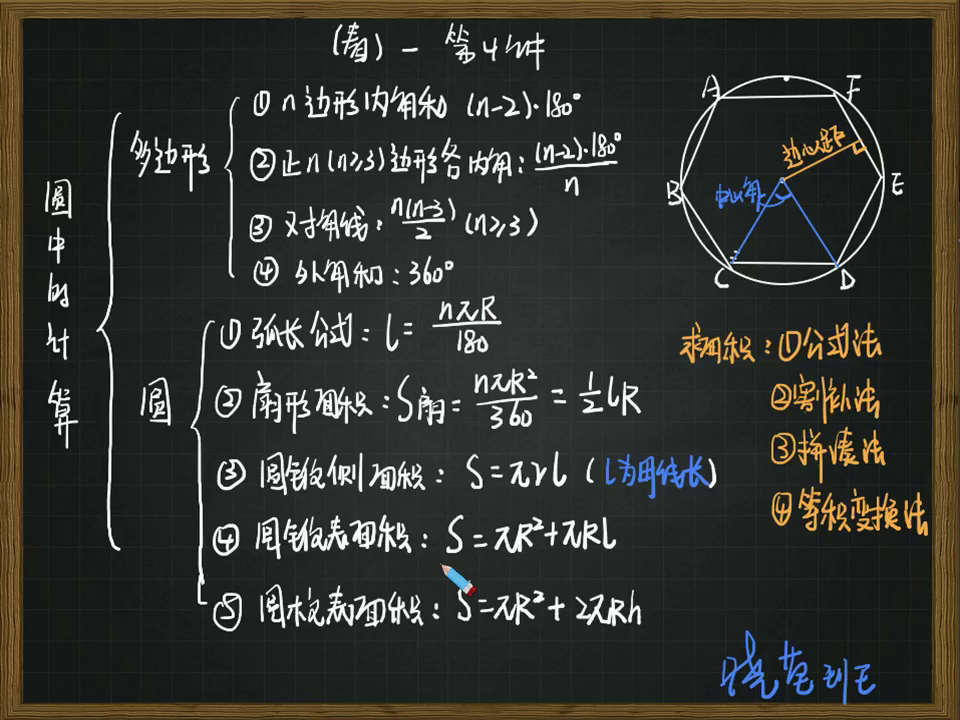 (春) - 第4讲
圆中的计算
多边形
① n边形内角和 (n-2)·180°
② 正n(n≥3)边形各内角: (n-2)·180°/n
③ 对角线: n(n-3)/2 (n≥3)
④ 外角和: 360°
圆
① 弧长公式: l = nπR/180
② 扇形面积: S扇 = nπR²/360 = 1/2 lR
③ 圆锥侧面积: S = πrl (l为母线长)
④ 圆锥表面积: S = πR² + πRl
⑤ 圆柱表面积: S = πR² + 2πRh
A
F
B
E
C
D
边心距
中心角
求面积: ①公式法
②割补法
③拼凑法
④等积变换法